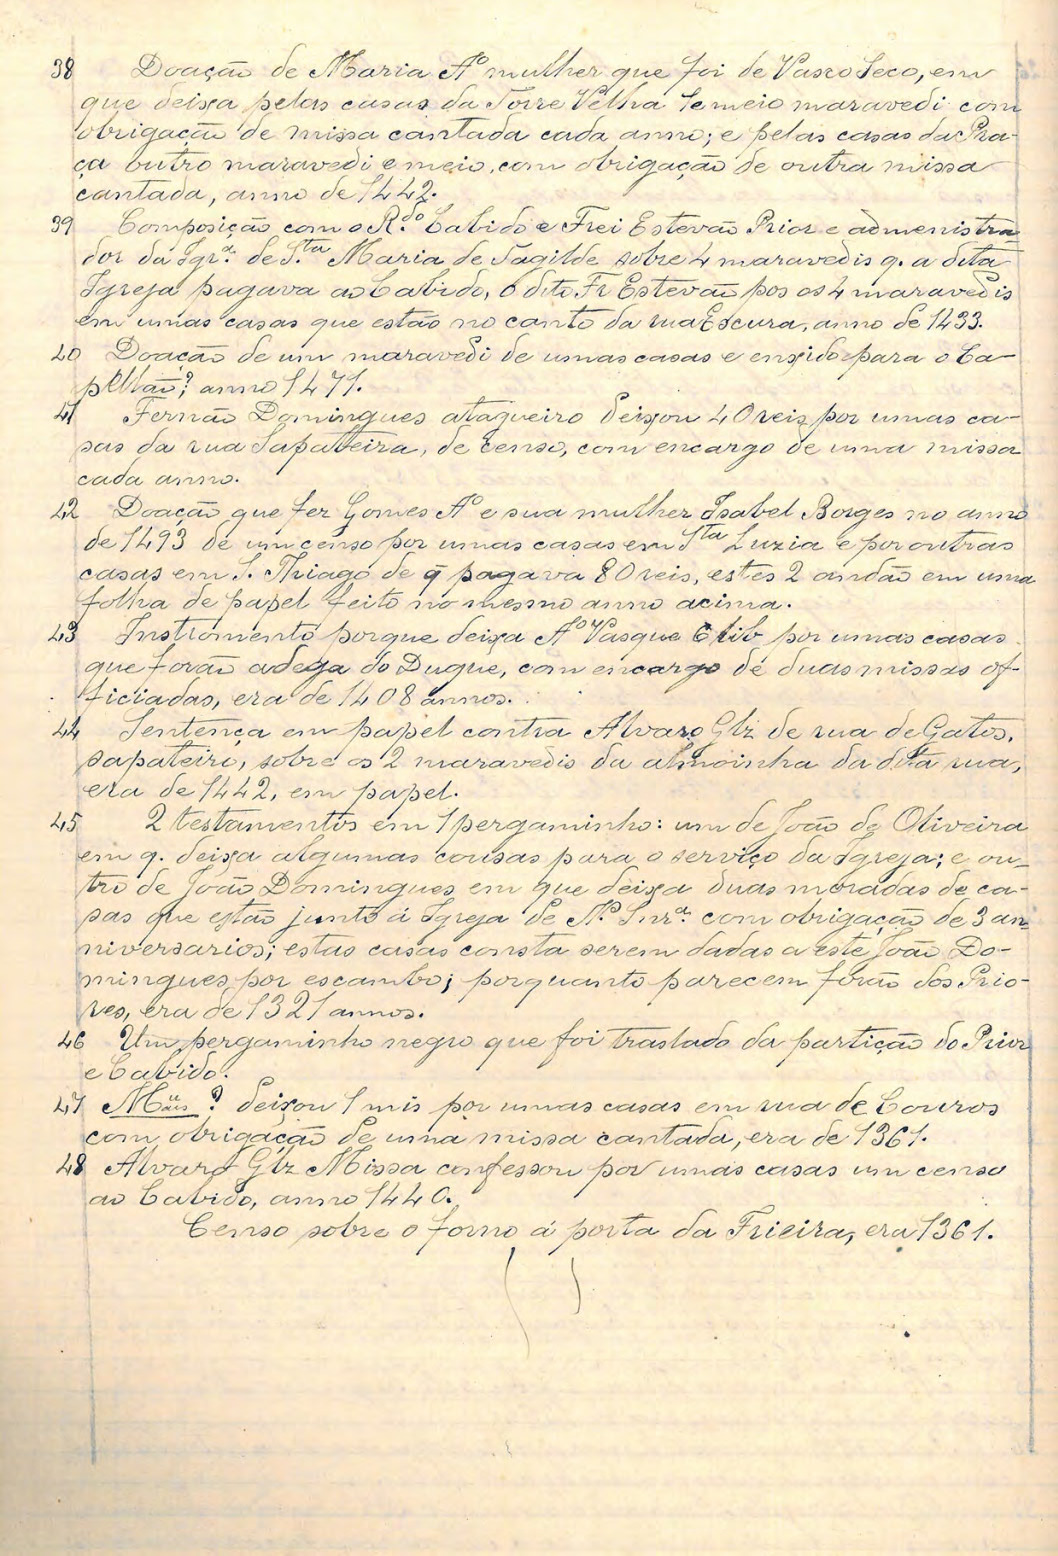 38 Doação de Maria Aº mulher que foi de Vasco Seco, em
que deixa pelas casas da Torre Velha 1 e meio maravedi com
obrigação de missa cantada cada anno; e pelas casas da Pra-
ça outro maravedi e meio, com obrigação de outra missa
cantada, anno de 1442.
39 Composição com o R.do Cabido e Frei Estevão Prior e admenistra-
dor da Igr.ª de S.ta Maria de Tagilde sobre 4 maravedis q. a dita
Igreja pagava ao Cabido, o dito Fr Estevão pos os 4 maravedis
em umas casas que estão no canto da rua Escura, anno de 1433.
40 Doação de um maravedi de umas casas e enxido para o Ca-
pellão? anno 1471.
41 Fernão Domingues ataqueiro deixou 40 reis por umas ca-
sas da rua Sapateira, de censo, com encargo de uma missa
cada anno.
42 Doação que fez Gomes Aº e sua mulher Isabel Borges no anno
de 1493 de um censo por umas casas em Sta Luzia e por outras
casas em S. Thiago de q̃ pagava 80 reis, estes 2 andão em uma
folha de papel feito no mesmo anno acima.
43 Instromento porque deixa Aº Vasque por umas casas
que forão adega do Duque, com encargo de duas missas of-
ficiadas, era de 1408 annos.
44 Sentença em papel contra Alvaro Glz de rua de Gatos,
sapateiro, sobre os 2 maravedis da almoinha da dita rua,
era de 1442, em papel.
45 2 testamentos em 1 pergaminho: um de João de Oliveira
em q. deixa algumas cousas para o serviço da Igreja; e ou-
tro de João Domingues em que deixa duas moradas de ca-
sas que estão junto á Igreja de N.ª Snr.ª com obrigação de 3 an-
niversarios; estas casas consta serem dadas a este João Do-
mingues por escambo; porquanto parecem forão dos Prio-
res, era de 1321 annos.
46 Um pergaminho negro que foi traslado da partição do Prior
e Cabido.
47 ? deixou 1 mis por umas casas em rua de Couros
com obrigação de uma missa cantada, era de 1361.
48 Alvaro Glz Missa confessou por umas casas um censo
ao Cabido, anno 1440.
Censo sobre o forno á porta da Frieira, era 1361.